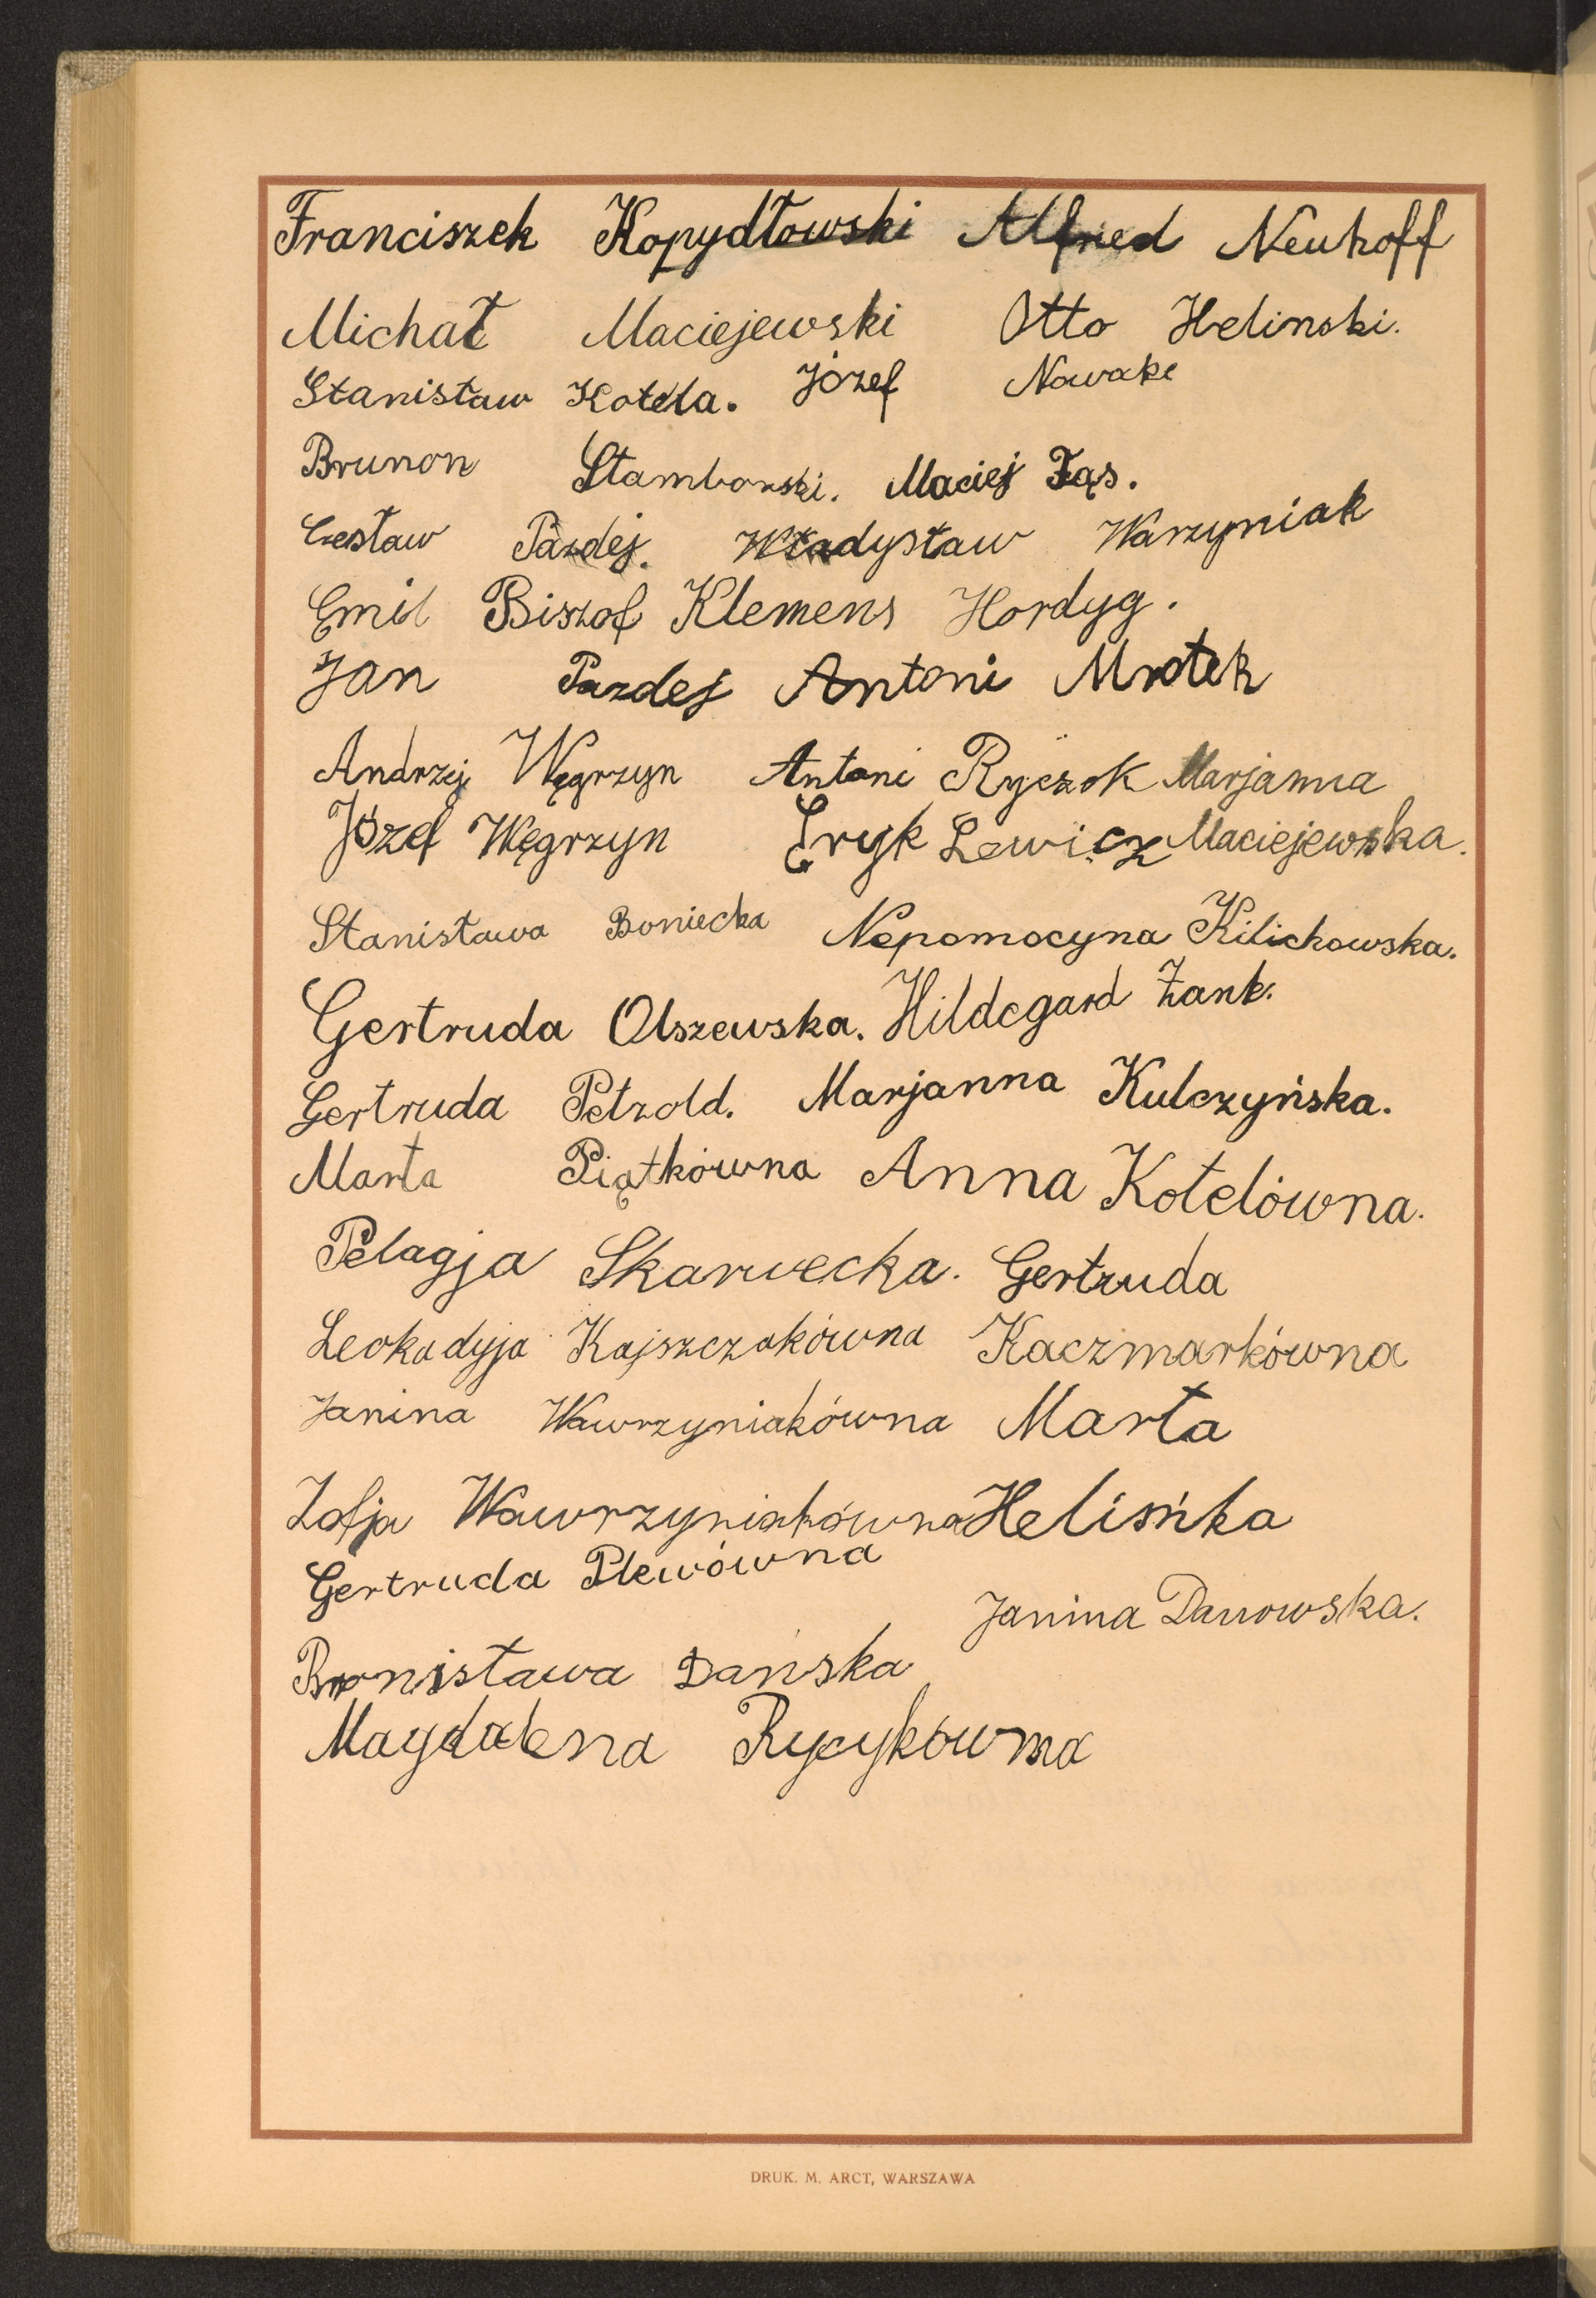 Franciszek Kopydłowski Alfred Neuhoff
Michał Maciejewski Otto Helinski.
Stanisław Kotela. Józef Nowake
Brunon Stamborski. Maciej Fąs.
Czesław Pazdej. Władysław Warzyniak
Emil Biszof Klemens Hordyg.
Jan Pazdej Antoni Mrotek
Andrzej Węgrzyn Antoni Ryczek Marjanna
Józef Węgrzyn Eryk Lewicz Maciejewska.
Stanisława Boniecka Nepomocyna Kilichowska.
Gertruda Olszewska. Hildegard Zank.
Gertruda Petzold. Marjanna Kulczyńska.
Marta Piątkówna Anna Kotelówna.
Pelagja Skarwecka. Gertruda
Leokadyja Kajszczakówna Kaczmarkówna
Janina Wawrzyniakówna Marta
Zofja Wawrzyniakówna Helińska
Gertruda Plewówna
Janina Danowska.
Bronisława Dańska
Magdalena Rycykówna
DRUK. M. ARCT, WARSZAWA